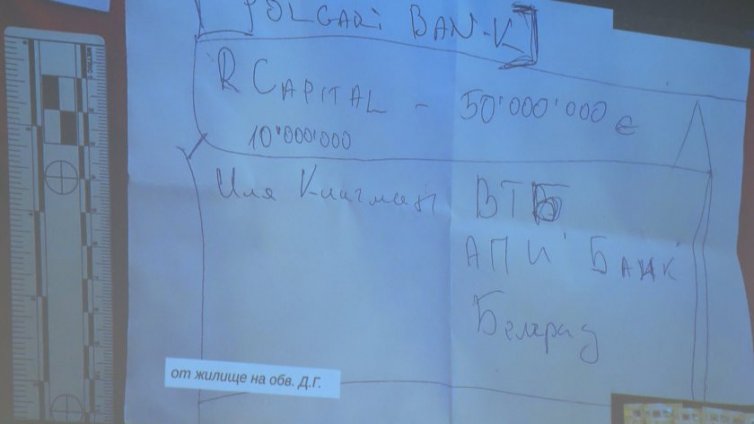 POLGARI BANK
R CAPITAL - 50'000'000 €
10'000'000
Иля Клигман ВТБ
АПИ БАНК
Белград
от жилище на обв. Д.Г.